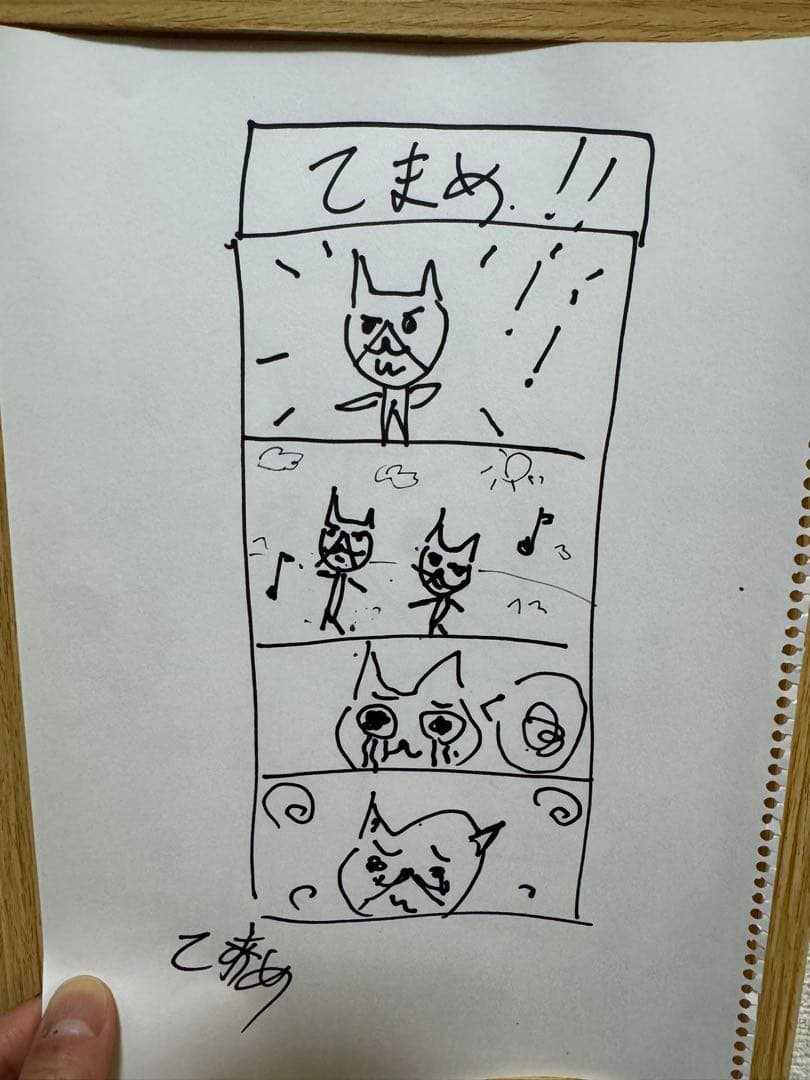 てまめ.!!
!!
てまめ